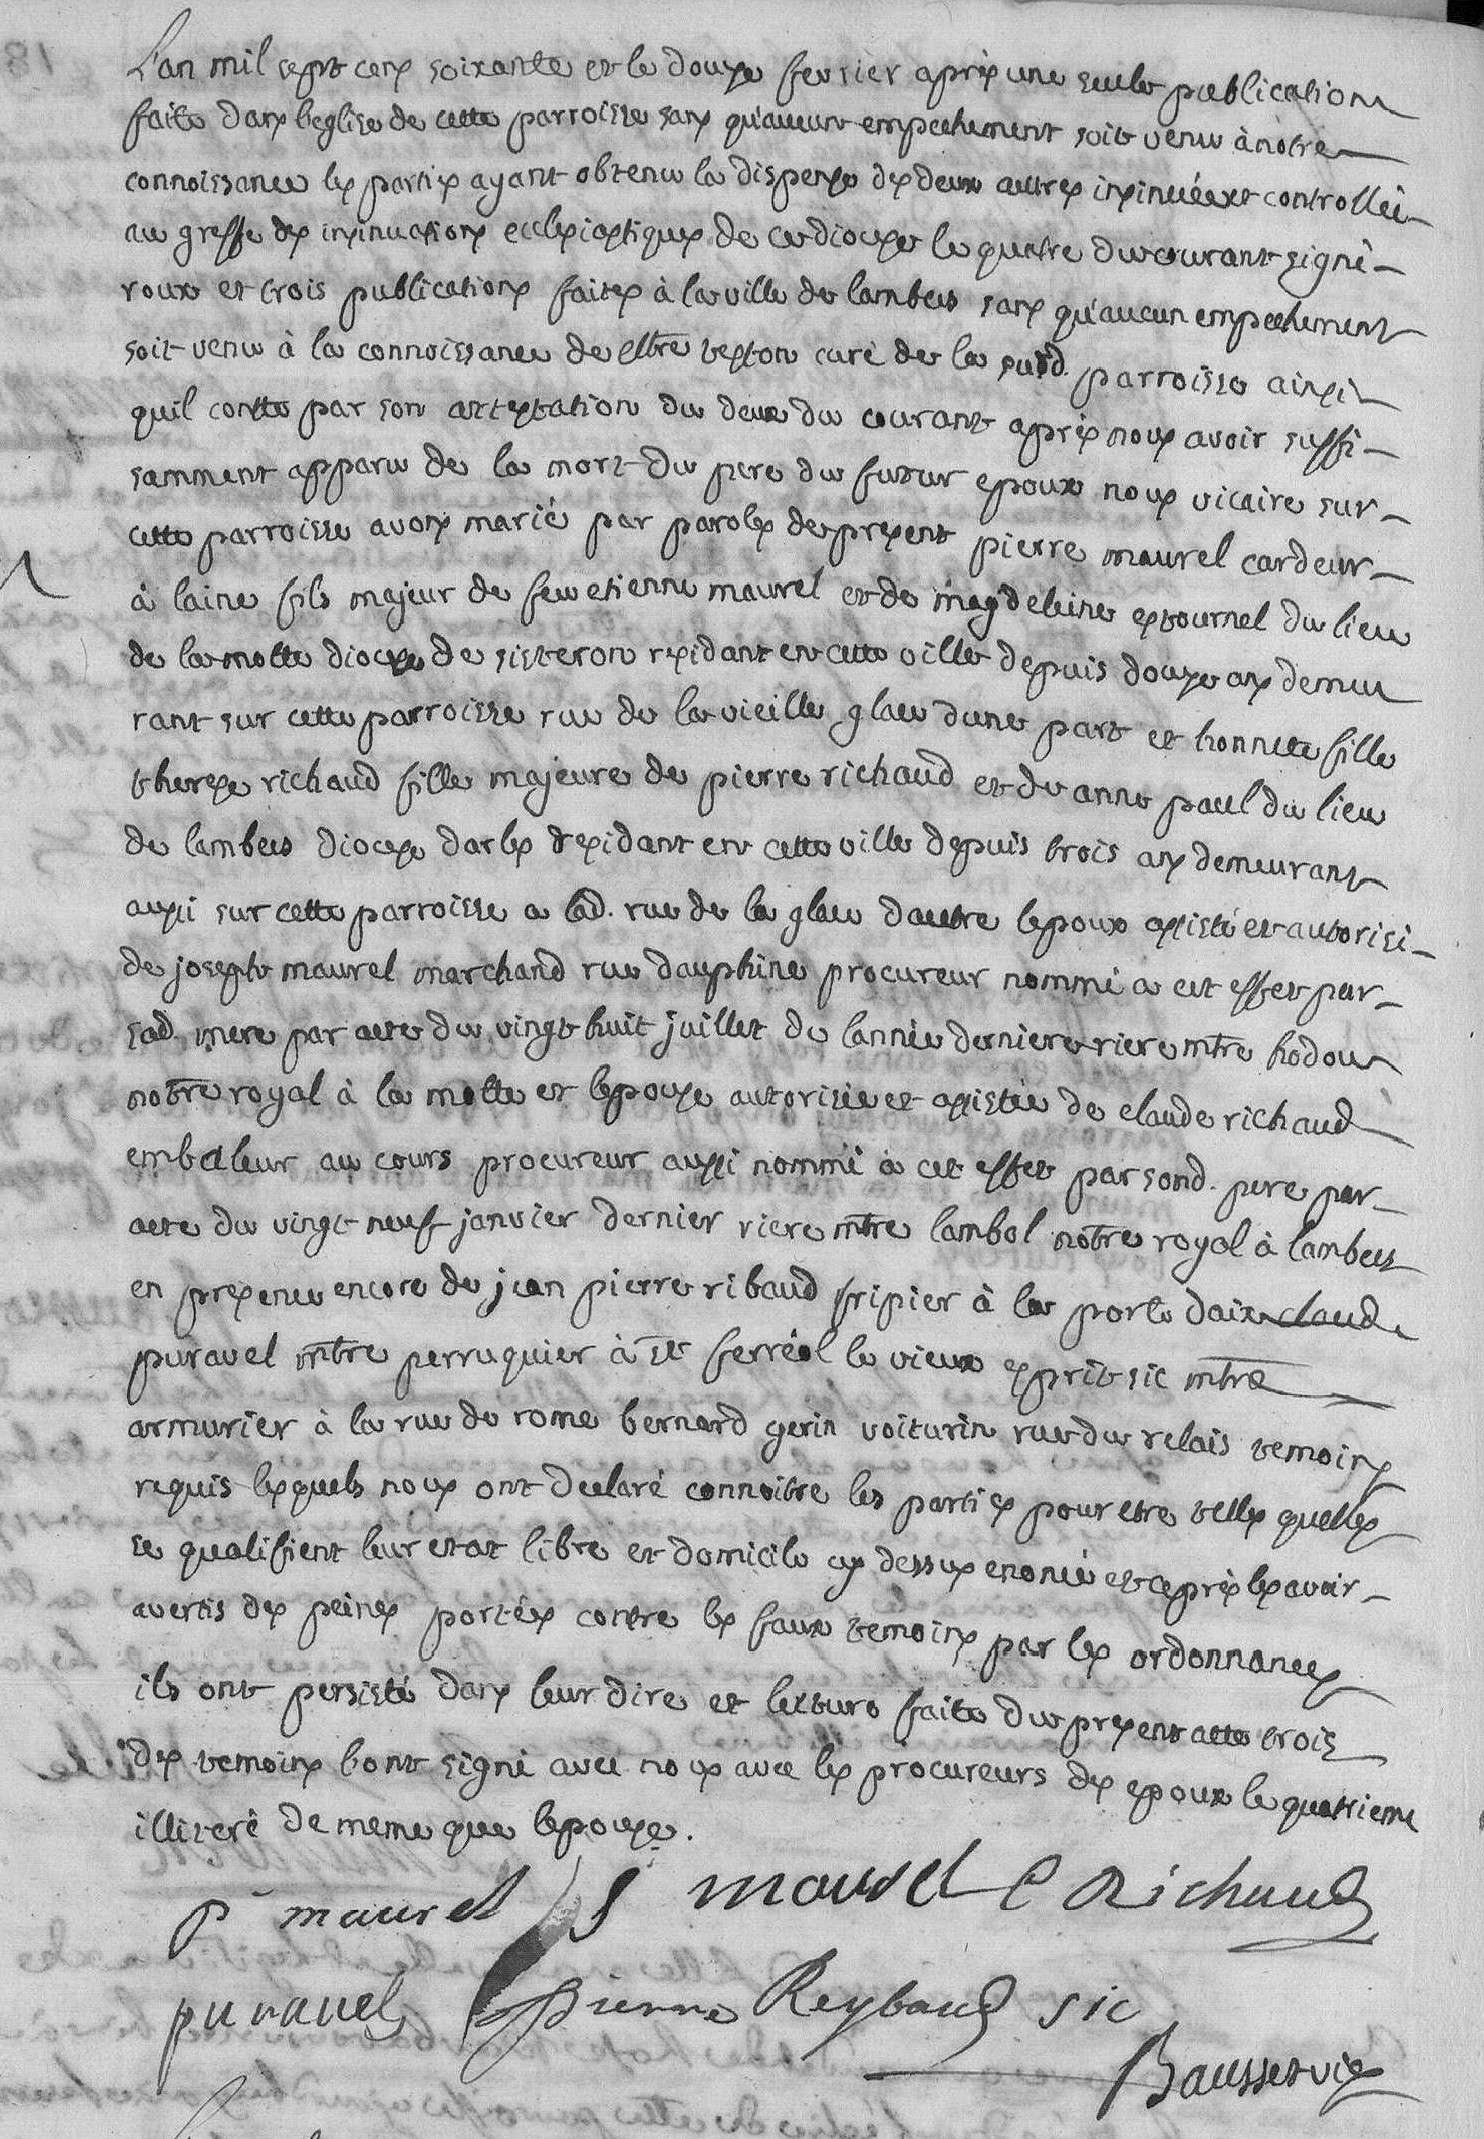 L'an mil sept cens soixante et le douze fevrier après une seule publication
faite dans l'eglise de cette parroisse sans qu'aucun empechement soit venu à notre
connoissance les parties ayant obtenu la dispense des deux autres insinuée et controllée
au greffe des insinuations ecclesiastiques de ce diocese le quatre du courant signé
roux et trois publications faites à la ville de lambesc sans qu'aucun empechement
soit venu à la connoissance de mtre teston curé de la susd. parroisse ainsi
quil conste par son attestation du deux du courant après nous avoir suffi-
samment apparu de la mort du pere du futur epoux nous vicaire sur
cette parroisse avons marié par paroles de present pierre maurel cardeur
à laine fils majeur de feu etienne maurel et de magdeleine estournel du lieu
de la motte diocese de sisteron residant en cette ville depuis douze ans demeu
rant sur cette parroisse rue de la vieille glace dune part et honnete fille
therese richaud fille majeure de pierre richaud et de anne paul du lieu
de lambesc diocese darles residant en cette ville depuis trois ans demeurant
aussi sur cette parroisse a lad. rue de la glace dautre lepoux assisté et autorisé
de joseph maurel marchand rue dauphine procureur nommé a cet effet par
sad. mere par acte du vingt huit juillet de lannée derniere riere mtre hodou
notre royal à la motte et lepouse autorisée et assistée de claude richaud
embaleur au cours procureur aussi nommé à cet effet par sond. pere par
acte du vingt neuf janvier dernier riere mtre lambol notre royal à lambesc
en presence encore de jean pierre ribaud fripier à la porte daix claude
puravel mtre perruquier à st ferréol le vieux esprit sic mtre
armurier à la rue de rome bernard gerin voiturin rue du relais temoins
requis lesquels nous ont declaré connoitre les parties pour etre telles quelles
se qualifient leur etat libre et domicile cy dessus enoncé et après les avoir
avertis des peines portées contre les faux temoins par les ordonnances
ils ont persisté dans leur dire et lecture faite du present acte trois
des temoins lont signé avec nous avec les procureurs des epoux le quatrieme
illiteré de meme que lepouse.
p maurel J maurel C Richaud
puravel pierre Reybaud sic
Bausset vic